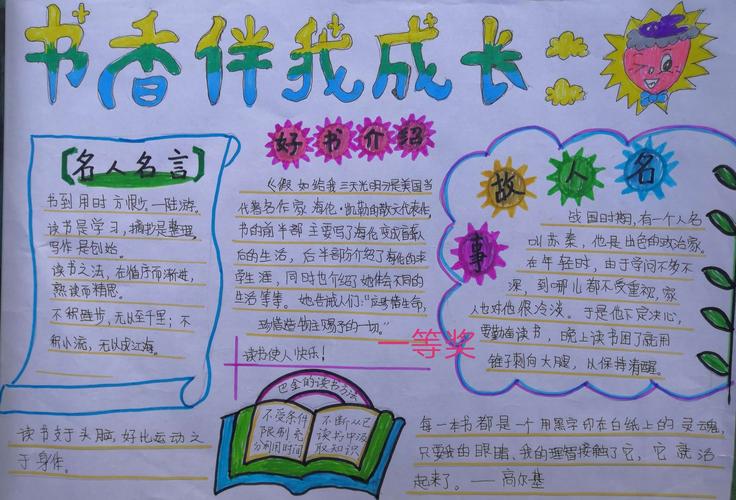 书香伴我成长：
名人名言
书到用时方恨少。一陆游。
读书是学习，摘抄是整理，
写作是创始。
读书之法，在循序而渐进，
熟读而精思。
不积跬步，无以至千里；不
积小流，无以成江海。
好书介绍
《假如给我三天光明》是美国当
代著名作家海伦·凯勒的散文代表作，
书的前半部主要写了海伦变成盲聋人
后的生活，后半部分介绍了海伦的求
学生涯，同时也介绍了她体会不同的
生活等等。她告诫人们："应珍惜生命，
珍惜造物主赐予的一切。"
读书使人快乐！
一等奖
名人故事
战国时期，有一个人名
叫苏秦，他是出色的政治家。
在年轻时，由于学问不多不
深，到哪儿都不受重视，家
人也对他很冷淡。于是他下定决心，
要勤奋读书，晚上读书困了就用
锥子刺向大腿，以保持清醒。
巴金的读书方法
不受条件
限制充
分利用时间
不断从已
读书中汲
取知识
读书对于头脑，好比运动之
于身体。
每一本书都是一个用黑字印在白纸上的灵魂，
只要我的眼睛、我的理智接触了它，它就活
起来了。——高尔基